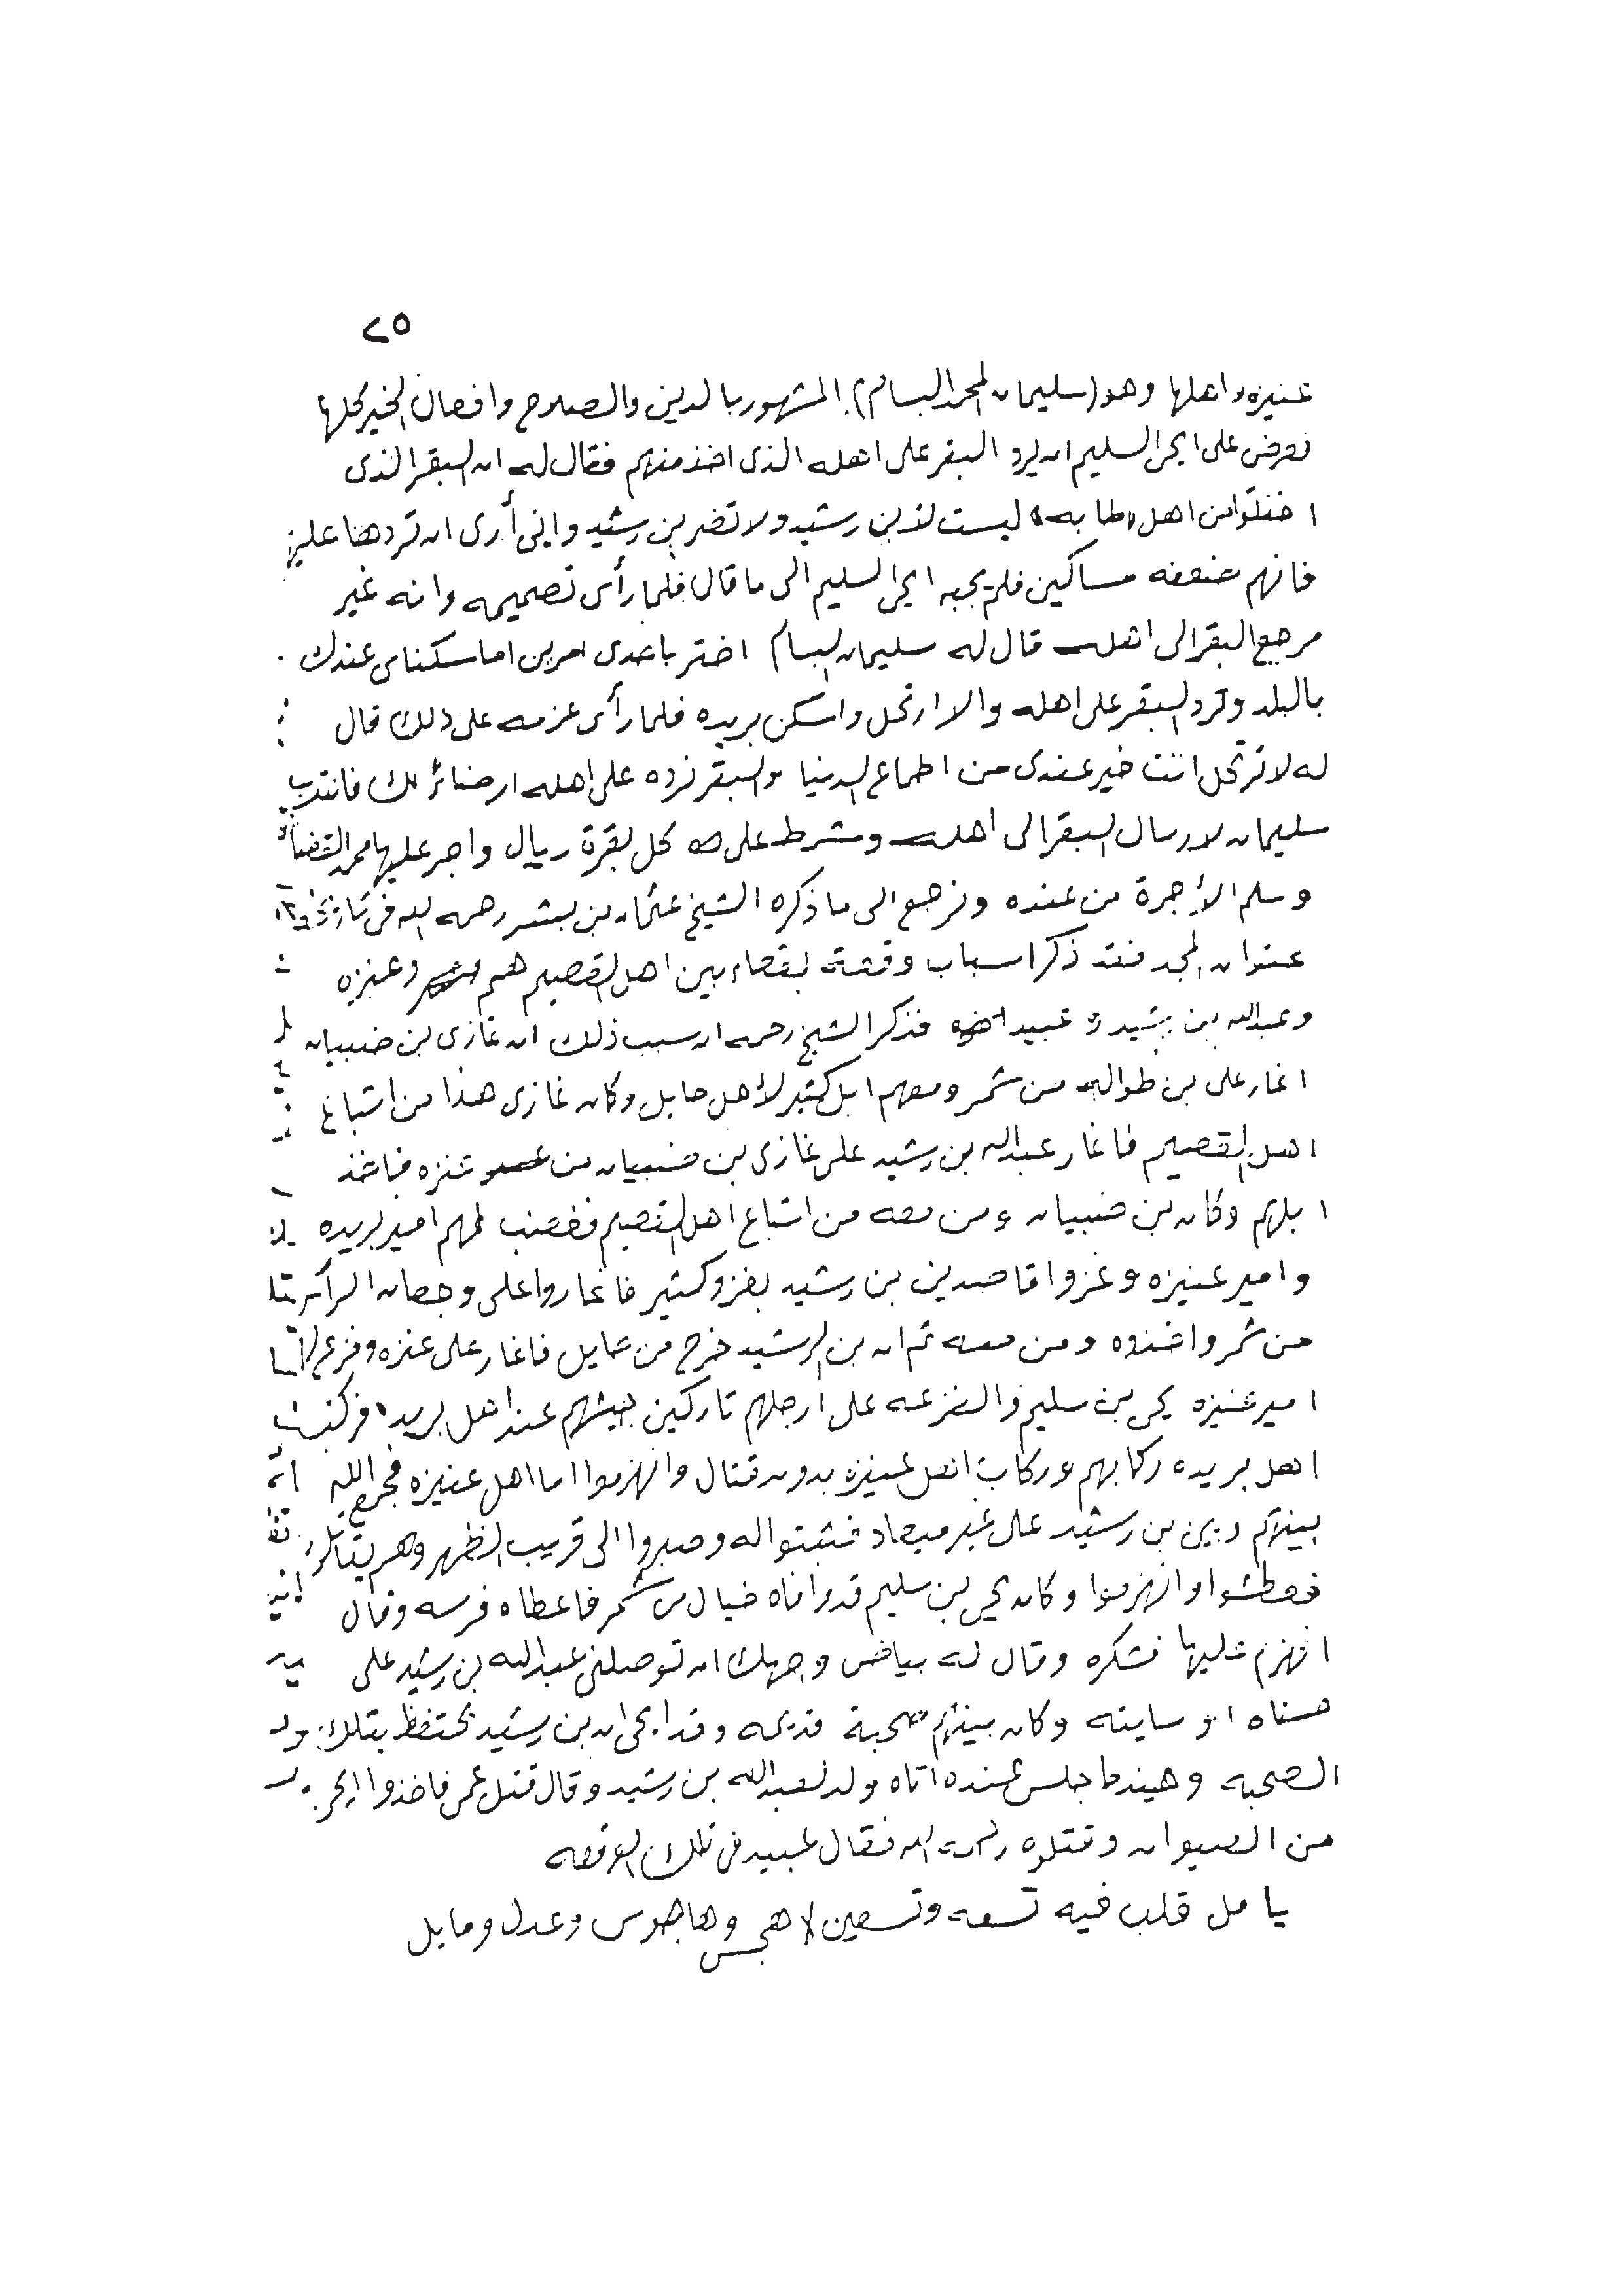 ٢٥
عنيزه واهلها وهو (سليمان المحمد البسام) المشهور بالدين والصلاح وافعال الخير كلها
فعرض على ايحي السليم ان يرد البقر على اهله الذي اخذ منهم فقال له ان البقر الذي
اخذتوا من اهل «طابه» ليست لابن رشيد ولا تضر بن رشيد واني أرى ان تردها عليهم
فانهم ضعفه مساكين فلم يجبه ايحي السليم الى ما قال فلما رأى تصميمه وانه غير
مرجع البقر الى اهله قال له سليمان البسام اختر باحدى امرين اما سكناي عندك
بالبلد وترد البقر على اهله والا ارتحل واسكن بريده فلما رأى عزمه على ذلك قال
له لا ترتحل انت خير عندي من اطماع الدنيا والبقر نرده على اهله ارضائا لك فانتدب
سليمان لارسال البقر الى اهله وشرط على كل بقرة ريال واجر عليها محمد القضاة
وسلم الأجرة من عنده ونرجع الى ما ذكره الشيخ عثمان بن بشر رحمه الله في تاريخه
عنوان المجد فقد ذكر اسباب وقعة بقعاء بين اهل القصيم هم وعنيزه
وعبدالله بن رشيد و عبيد اخوه فذكر الشيخ رحمه ان سبب ذلك ان غازي بن ضبيان
اغار على بن طواله من شمر ومعهم ابل كثير لأهل حايل وكان غازي هذا من اتباع
اهل القصيم فاغار عبدالله بن رشيد على غازي بن ضبيان من عنزه فاخذ
ابلهم وكان بن ضبيان ومن معه من اتباع اهل القصيم فغضب لهم امير بريده
وامير عنيزه وغزوا قاصدين بن رشيد بغزو كثير فاغاروا على وجعان الرأس
من شمر واخذوه ومن معه ثم ان بن الرشيد خرج من حايل فاغار على عنزه وفزع لها
امير عنيزه يحي بن سليم والفزعه على ارجلهم تاركين جيشهم عند اهل بريده فركبت
اهل بريده ركابهم وركاب اهل عنيزه بدون قتال وانهزموا اما اهل عنيزه فجمع الله
بينهم وبين بن رشيد على غير ميعاد فثبتوا له وصبروا الى قريب الظهر وهم يقاتلون
فعطشوا وانهزموا وكان يحي بن سليم قد وافاه خيال من شمر فاعطاه فرسه وقال
انهزم عليها فشكره وقال له بياض وجهك ان توصلني عبدالله بن رشيد على
حسناه او سايته وكان بينهم صحبة قديمه وقد ايحي ان بن رشيد يحتفظ بتلك
الصحبه وحيندما جلس عنده اتاه ولد لعبدالله بن رشيد وقال قتل عمي فاخذوا ايحي
من الصيوان وقتلوه رحمه الله فقال عبيد في تلك الوقعه
يا مل قلب فيه تسعه وتسعين لا هجس وهاجوس وعدل ومايل